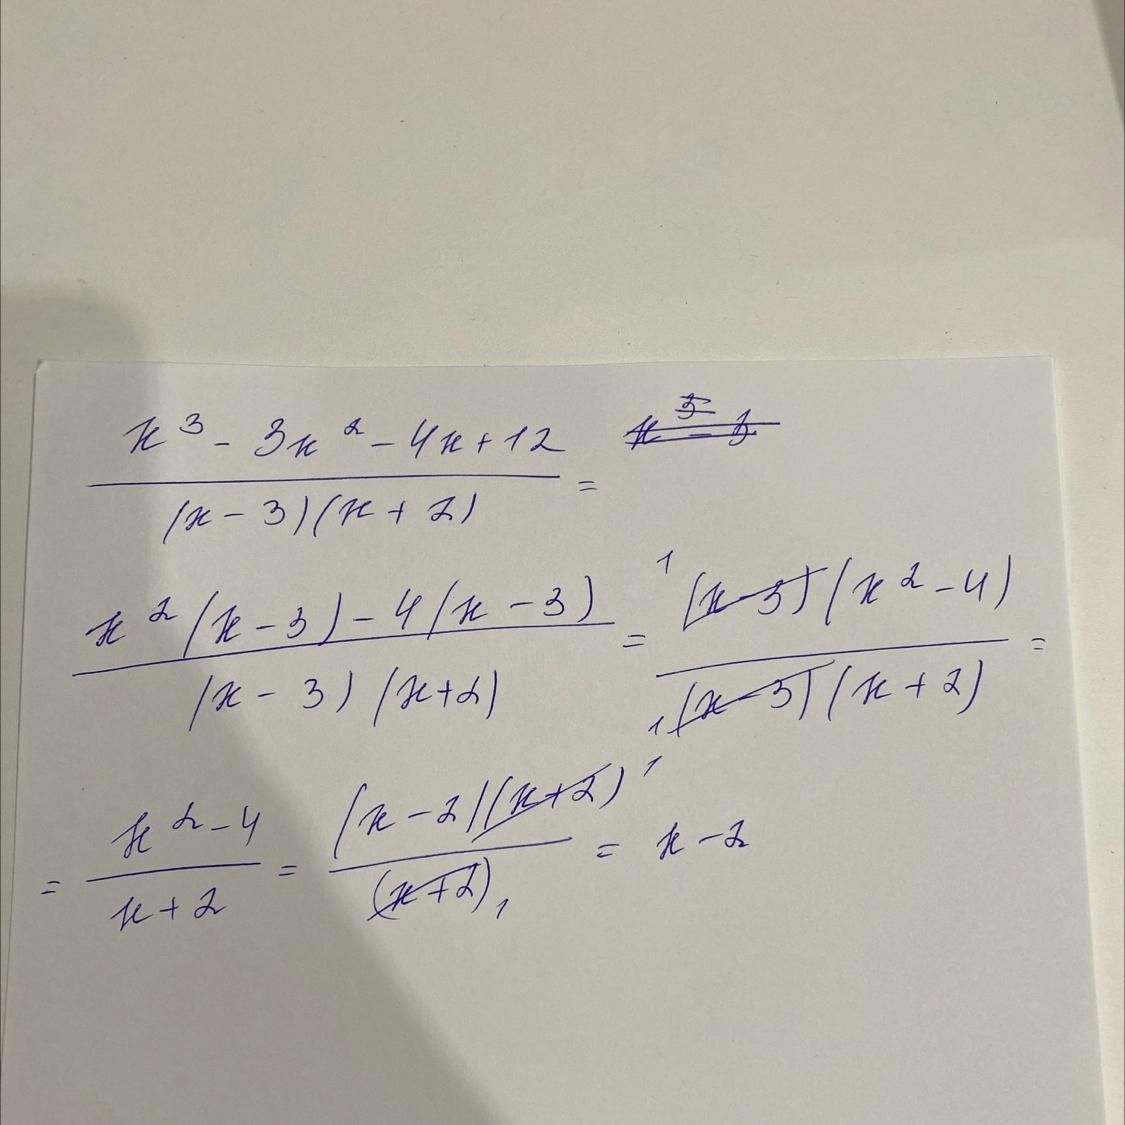 x³ - 3x² - 4x + 12 / (x - 3)(x + 2) =
x²(x - 3) - 4(x - 3) / (x - 3)(x + 2) = ¹(x - 3)(x² - 4) / ₁(x - 3)(x + 2) =
= x² - 4 / x + 2 = (x - 2)(x + 2)¹ / (x + 2)₁ = x - 2